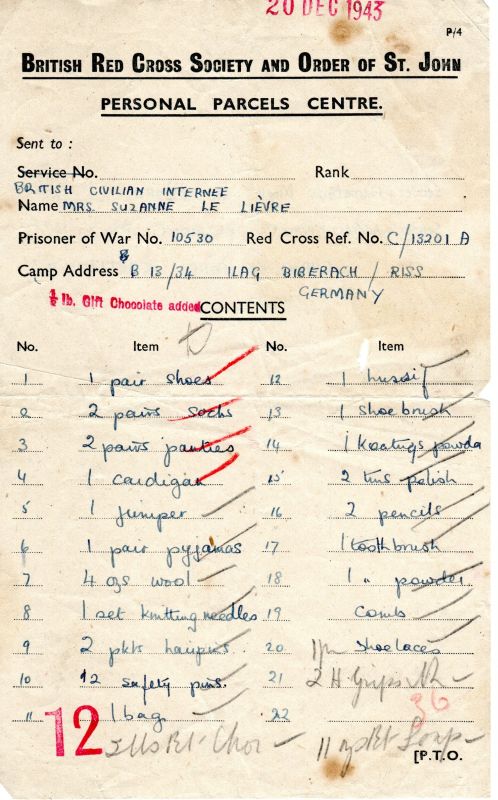 20 DEC 1943
P/4
BRITISH RED CROSS SOCIETY AND ORDER OF ST. JOHN
PERSONAL PARCELS CENTRE.
Sent to :
Service No. Rank
BRITISH CIVILIAN INTERNEE
Name MRS. SUZANNE LE LIÈVRE
Prisoner of War No. 10530 Red Cross Ref. No. C/13201 A
Camp Address B 13/34 ILAG BIBERACH / RISS
GERMANY
½ lb. Gift Chocolate added
CONTENTS
No. Item No. Item
1 1 pair shoes 12 1 hussif
2 2 pairs socks 13 1 shoebrush
3 2 pairs panties 14 1 keatings powda
4 1 cardigan 15 2 tins polish
5 1 jumper 16 2 pencils
6 1 pair pyjamas 17 1 toothbrush
7 4 ozs wool 18 1 " powder
8 1 set knitting needles 19 comb
9 2 pkts hairpins 20 shoelaces
10 12 safety pins. 21 2 H. Grips
11 1 bag 22
36
12
[P.T.O.